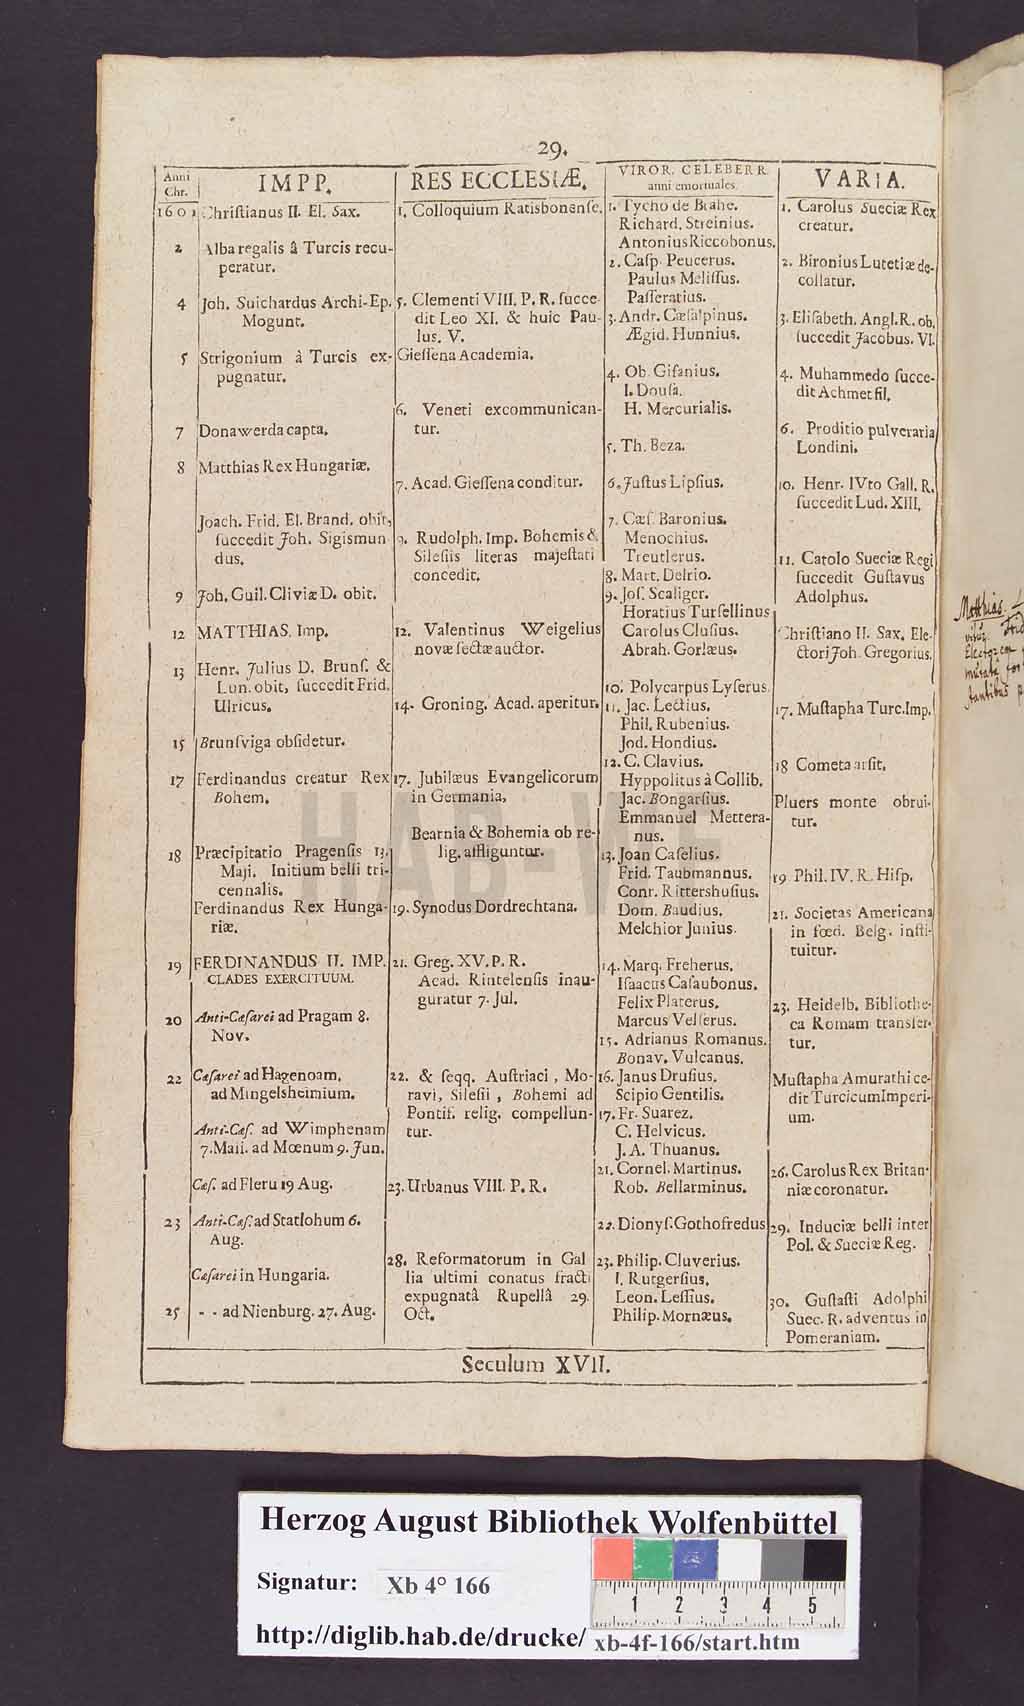 29.
Anni
Chr.
IMPP.
1601
Chriſtianus II. El. Sax.
2
Alba regalis â Turcis recu-
peratur.
4
Joh. Suichardus Archi-Ep.
Mogunt.
5
Strigonium à Turcis ex-
pugnatur.
7
Donawerda capta.
8
Matthias Rex Hungariæ.
Joach. Frid. El. Brand. obit,
ſuccedit Joh. Sigismun
dus.
9
Joh. Guil. Cliviæ D. obit.
12
MATTHIAS. Imp.
13
Henr. Julius D. Brunſ. &
Lun. obit, ſuccedit Frid.
Ulricus.
15
Brunſviga obſidetur.
17
Ferdinandus creatur Rex
Bohem.
18
Præcipitatio Pragenſis 13.
Maji. Initium belli tri-
cennalis.
Ferdinandus Rex Hunga-
riæ.
19
FERDINANDUS II. IMP.
CLADES EXERCITUUM.
20
Anti-Cæſarei ad Pragam 8.
Nov.
22
Cæſarei ad Hagenoam,
ad Mingelsheimium.
Anti-Cæſ. ad Wimphenam
7. Maii. ad Mœnum 9. Jun.
Cæſ. ad Fleru 19 Aug.
23
Anti-Cæſ. ad Statlohum 6.
Aug.
Cæſarei in Hungaria.
25
- - ad Nienburg. 27. Aug.
RES ECCLESIÆ.
1. Colloquium Ratisbonenſe.
5. Clementi VIII. P. R. ſucce-
dit Leo XI. & huic Pau-
lus. V.
Gieſſena Academia.
6. Veneti excommunican-
tur.
7. Acad. Gieſſena conditur.
9. Rudolph. Imp. Bohemis &
Sileſiis literas majeſtati
concedit.
12. Valentinus Weigelius
novæ ſectæ auctor.
14. Groning. Acad. aperitur.
17. Jubilæus Evangelicorum
in Germania,
Bearnia & Bohemia ob re-
lig. affliguntur.
19. Synodus Dordrechtana.
21. Greg. XV. P. R.
Acad. Rintelenſis inau-
guratur 7. Jul.
22. & ſeqq. Auſtriaci, Mo-
ravi, Sileſii, Bohemi ad
Pontif. relig. compellun-
tur.
23. Urbanus VIII. P. R.
28. Reformatorum in Gal
lia ultimi conatus fracti
expugnatâ Rupellâ 29.
Oct.
VIROR. CELEBERR.
anni emortuales.
1. Tycho de Brahe.
Richard. Streinius.
Antonius Riccobonus.
2. Caſp. Peucerus.
Paulus Meliſſus.
Paſſeratius.
3. Andr. Cæſalpinus.
Ægid. Hunnius.
4. Ob. Giſanius.
I. Douſa.
H. Mercurialis.
5. Th. Beza.
6. Juſtus Lipſius.
7. Cæſ. Baronius.
Menochius.
Treutlerus.
8. Mart. Delrio.
9. Joſ. Scaliger.
Horatius Turſellinus
Carolus Cluſius.
Abrah. Gorlæus.
10. Polycarpus Lyſerus.
11. Jac. Lectius.
Phil. Rubenius.
Jod. Hondius.
12. C. Clavius.
Hyppolitus à Collib.
Jac. Bongarſius.
Emmanuel Mettera-
nus.
13. Joan Caſelius.
Frid. Taubmannus.
Conr. Rittershuſius.
Dom. Baudius.
Melchior Junius.
14. Marq. Freherus.
Iſaacus Caſaubonus.
Felix Platerus.
Marcus Velſerus.
15. Adrianus Romanus.
Bonav. Vulcanus.
16. Janus Druſius.
Scipio Gentilis.
17. Fr. Suarez.
C. Helvicus.
J. A. Thuanus.
21. Cornel. Martinus.
Rob. Bellarminus.
22. Dionyſ. Gothofredus
23. Philip. Cluverius.
I. Rutgerſius.
Leon. Leſſius.
Philip. Mornæus.
VARIA.
1. Carolus Sueciæ Rex
creatur.
2. Bironius Lutetiæ de-
collatur.
3. Eliſabeth. Angl. R. ob.
ſuccedit Jacobus. VI.
4. Muhammedo ſucce-
dit Achmet fil.
6. Proditio pulveraria
Londini.
10. Henr. IVto Gall. R.
ſuccedit Lud. XIII.
11. Carolo Sueciæ Regi
ſuccedit Guſtavus
Adolphus.
Chriſtiano II. Sax. Ele-
ctori Joh. Gregorius.
17. Muſtapha Turc. Imp.
18 Cometa arſit.
Pluers monte obrui-
tur.
19 Phil. IV. R. Hiſp.
21. Societas Americana
in fœd. Belg. inſti-
tuitur.
23. Heidelb. Bibliothe-
ca Romam transfer-
tur.
Muſtapha Amurathi ce-
dit Turcicum Imperi-
um.
26. Carolus Rex Britan-
niæ coronatur.
29. Induciæ belli inter
Pol. & Sueciæ Reg.
30. Guſtaſti Adolphi
Suec. R. adventus in
Pomeraniam.
Seculum XVII.
Matthias
HAB-WF
Herzog August Bibliothek Wolfenbüttel
Signatur: Xb 4° 166
1 2 3 4 5
http://diglib.hab.de/drucke/ xb-4f-166/start.htm